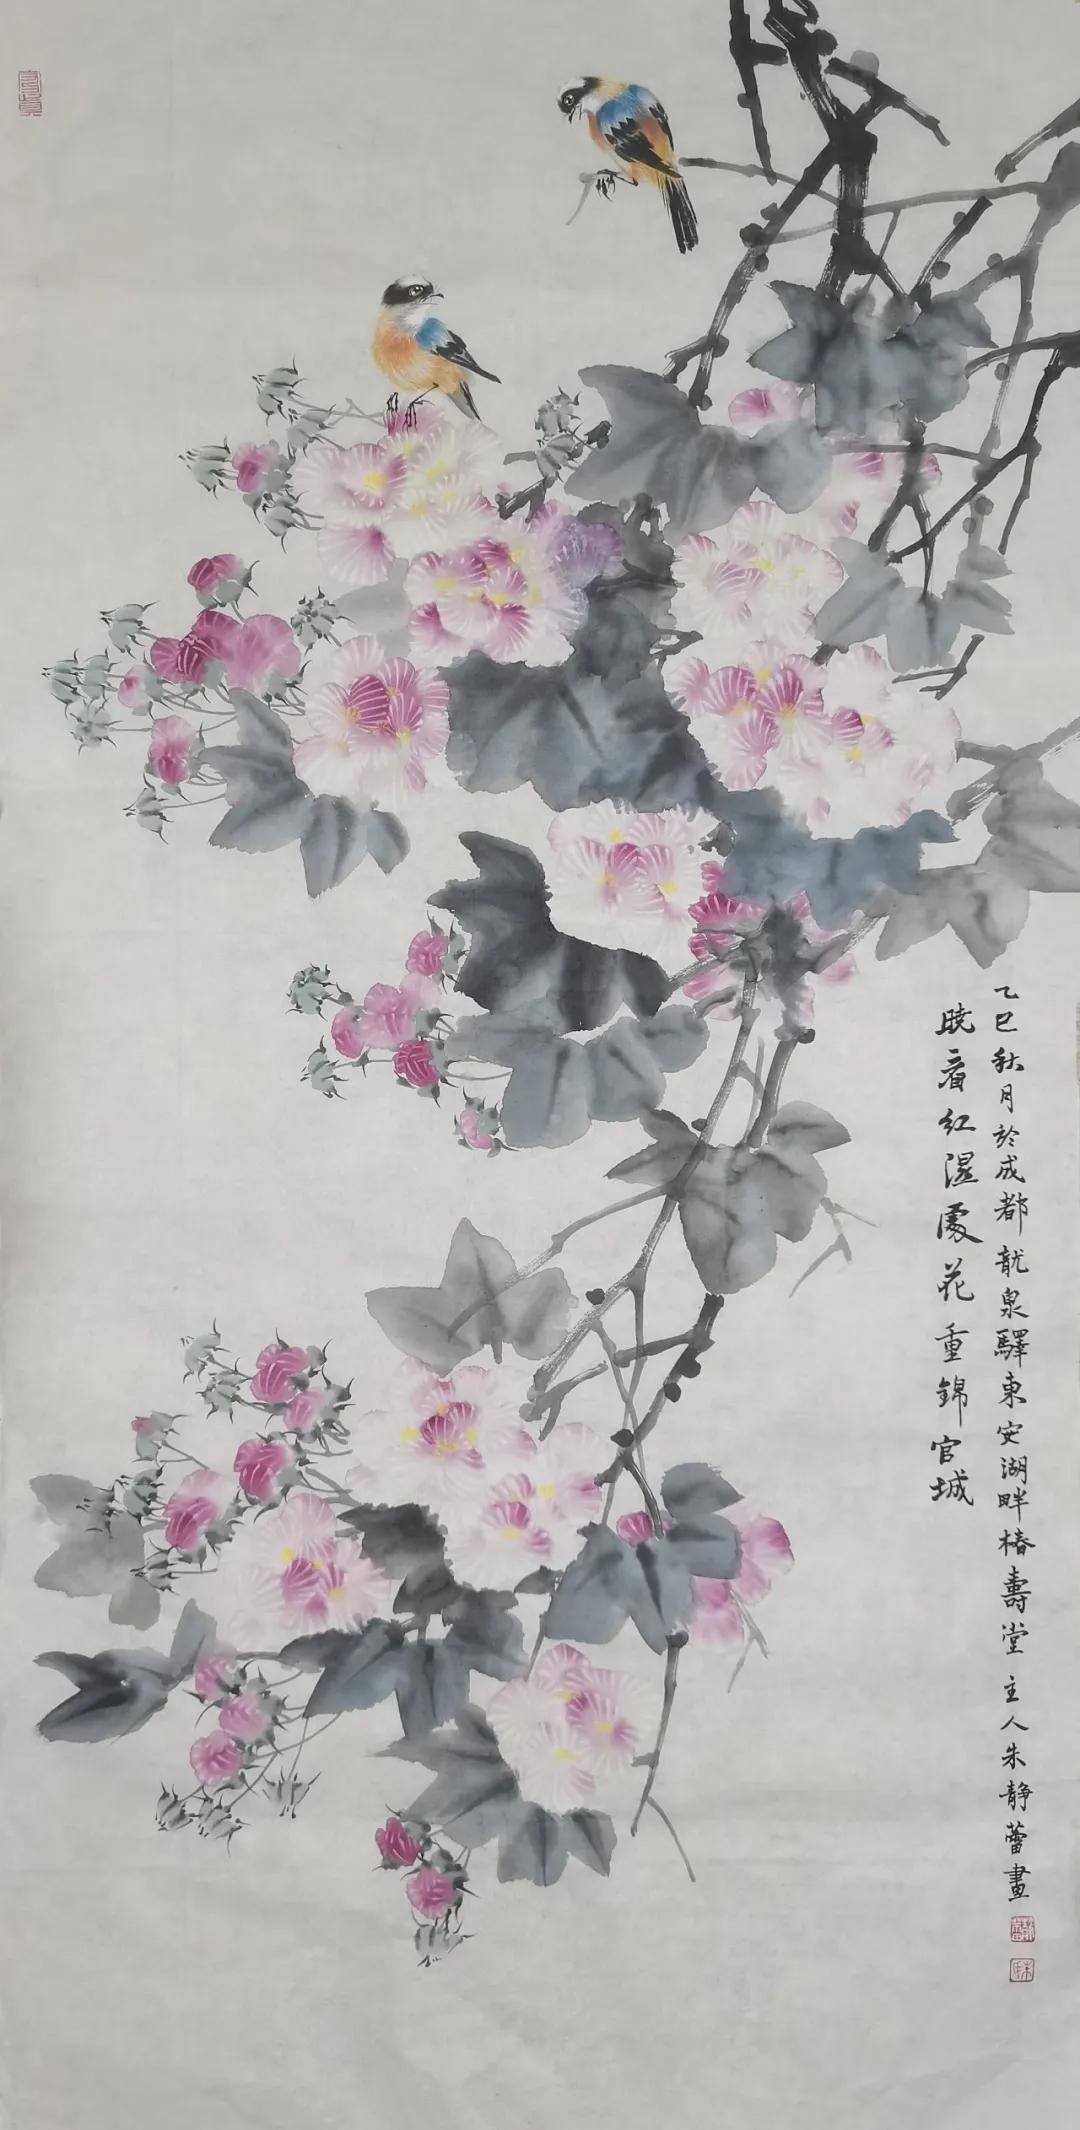 乙巳秋月於成都龍泉驛東安湖畔椿壽堂主人朱静蕾畫
曉看紅濕處花重錦官城